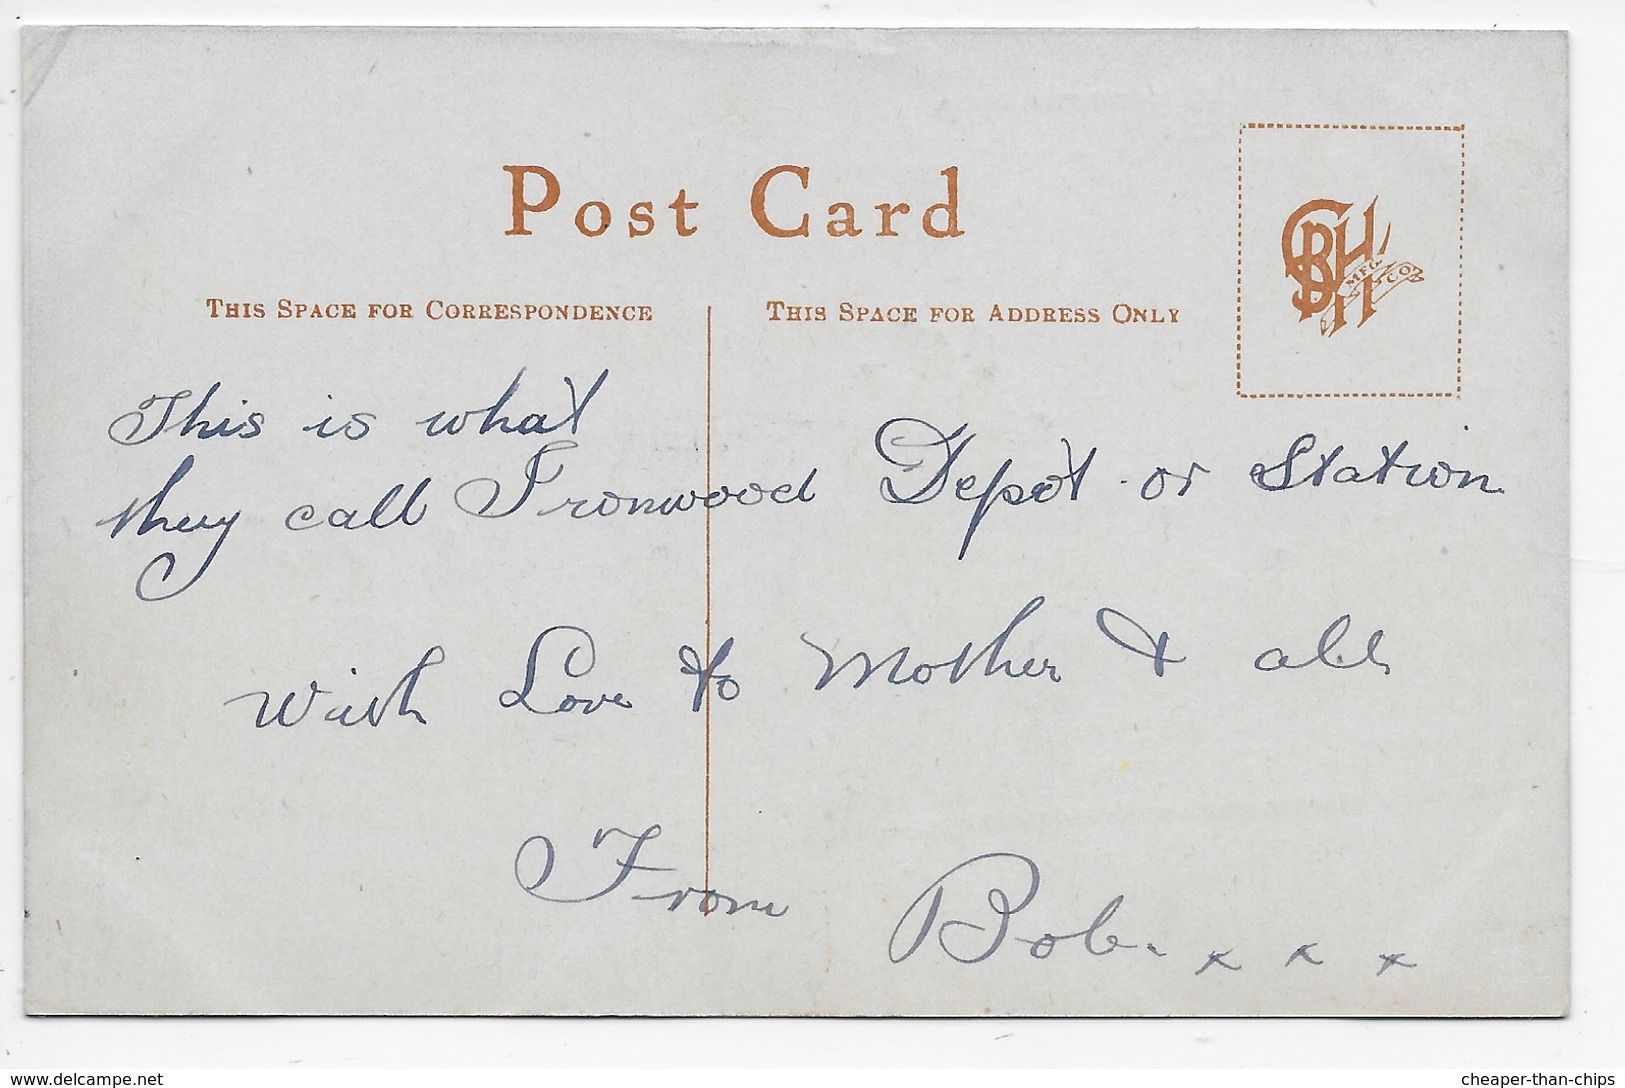 Post Card
THIS SPACE FOR CORRESPONDENCE
THIS SPACE FOR ADDRESS ONLY
MFG CO
This is what
they call Ironwood Depot or Station
With Love to Mother & all
From Bob. x x x
www.delcampe.net
cheaper-than-chips